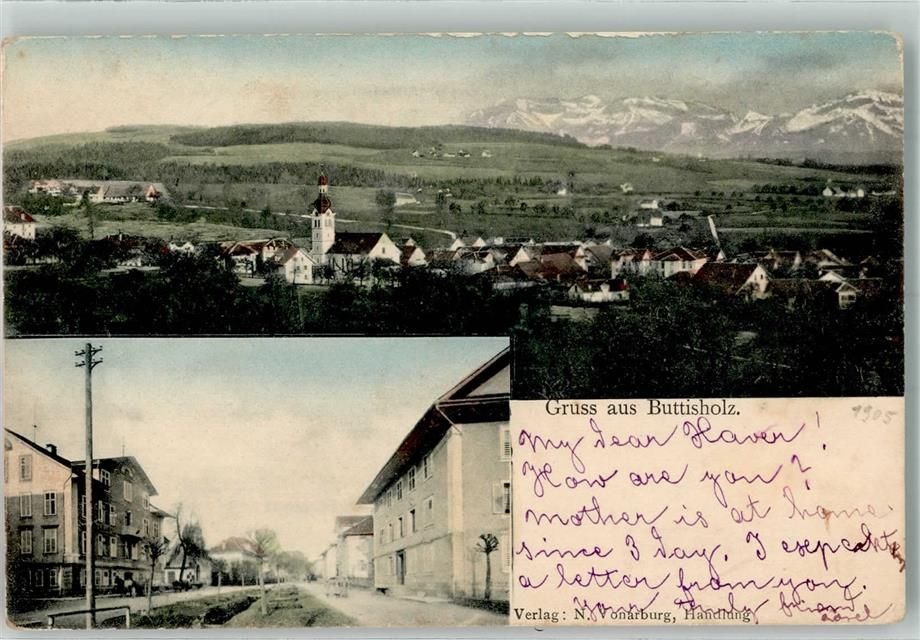 Gruss aus Buttisholz.
1905
My dear Haver!
How are you?
mother is at home
since 3 day. I esepcekt
a letter from you.
your friend.
Verlag: N. Vonarburg, Handlung